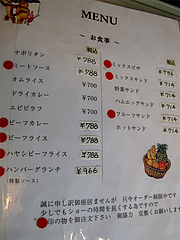 MENU
～ お食事 ～
税込
ナポリタン ￥788
ミートソース ￥788
オムライス ￥700
ドライカレー ￥700
エビピラフ ￥700
ビーフカレー ￥788
ビーフライス ￥788
ハヤシビーフライス ￥788
ハンバーグランチ ￥966
(特製ソース)
税込
ミックスピザ
ミックスサンド ￥714
野菜サンド ￥714
ハムエッグサンド ￥714
フルーツサンド ￥714
ホットサンド ￥714
誠に申し訳御座居ませんが 只今オーダー制限中です
少しでもショーの時間を長くする為ですので
●印の物を御注文下さい 御協力 宜敷くお願いします